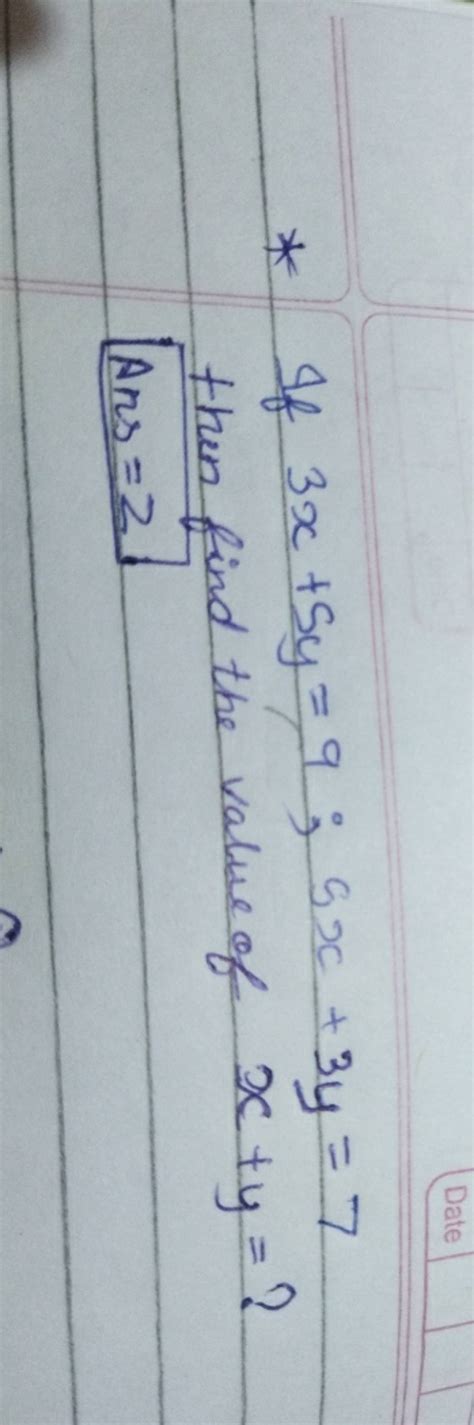 Date
* If 3x + 5y = 9 ; 5x + 3y = 7
then find the value of x + y = ?
Ans = 2